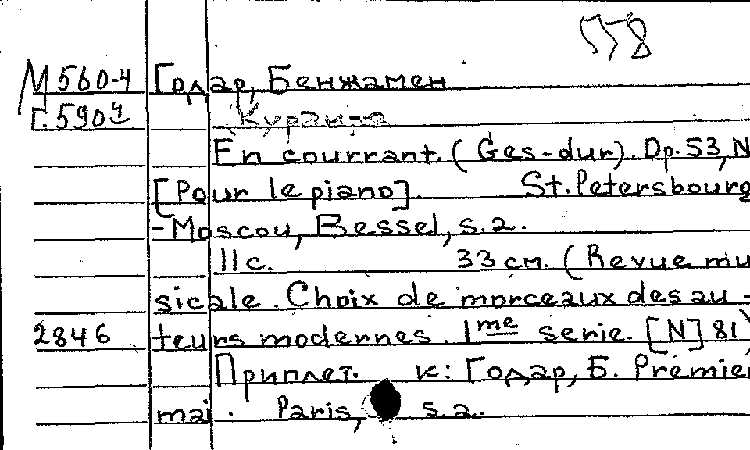 558
М560-4 Годар, Бенжамен
Г.590ч Куранта
En courrant. (Ges-dur). Op. 53, N
[Pour le piano]. St. Petersbourg
-Moscou, Bessel, s.a.
11 с. 33 см. (Revue mu
sicale. Choix de morceaux des au-
2846 teurs modernes. 1me serie. [N] 81)
Приплет. к: Годар, Б. Premier
mai. Paris, s.a.